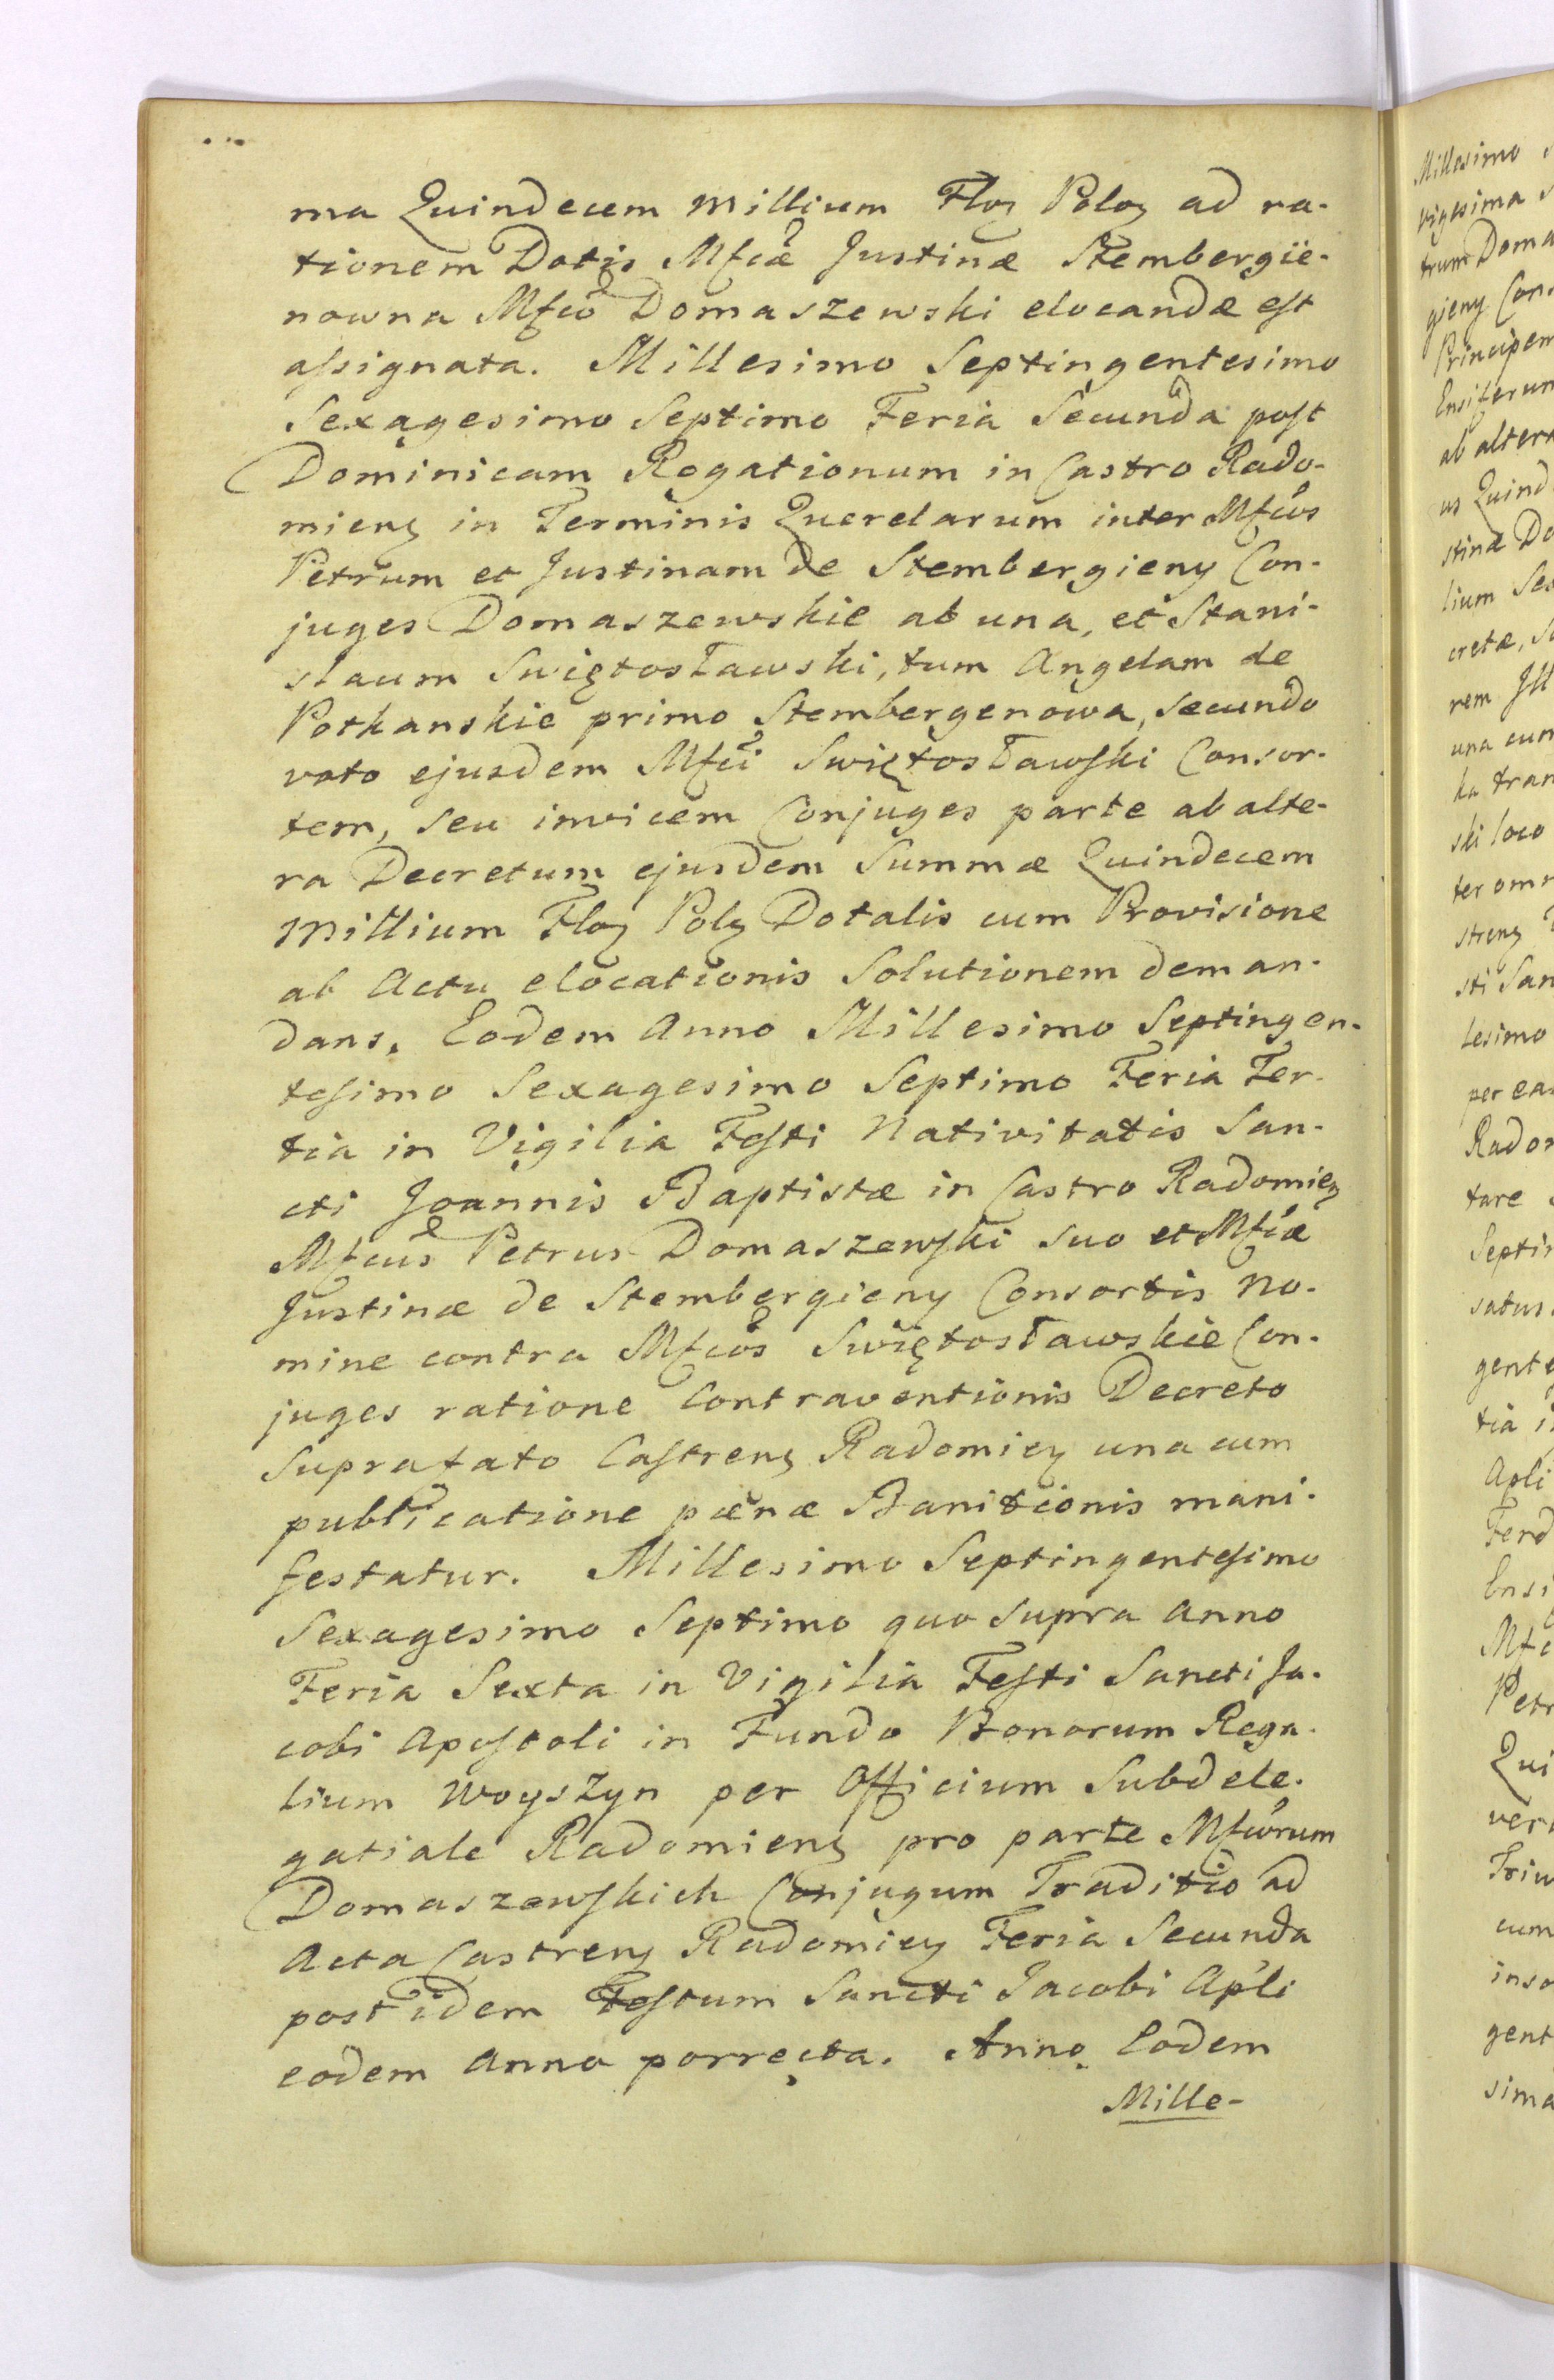 ma Quindecem Millium Floz Poloz ad ra-
tionem Dotis Mfcæ Justinæ Stembergie-
nowna Mfco Domaszewski elocandæ est
assignata. Millesimo Septingentesimo
Sexagesimo Septimo Feria Secunda post
Dominicam Rogationum in Castro Rado-
mienz in Terminis Querelarum inter Mfcos
Petrum et Justinam de Stembergieny Con-
juges Domaszewskie ab una, et Stani-
slaum Swiętosławski, tum Angelam de
Potkanskie primo Stembergenowa, secundo
voto ejusdem Mfci Swiętosławski Consor-
tem, seu invicem Conjuges parte ab alte-
ra Decretum ejusdem Summæ Quindecem
Millium Floz Polz Dotalis cum Provisione
ab Actu elocationis Solutionem deman-
dans. Eodem Anno Millesimo Septingen-
tesimo Sexagesimo Septimo Feria Ter-
tia in Vigilia Festi Nativitatis San-
cti Joannis Baptistæ in Castro Radomienz
Mfcus Petrus Domaszewski suo et Mfcæ
Justinæ de Stembergieny Consortis No-
mine contra Mfcos Swiętosławskie Con-
juges ratione Contraventionis Decreto
Suprafato Castrenz Radomienz una cum
publicatione pænæ Banitionis mani-
festatur. Millesimo Septingentesimo
Sexagesimo Septimo quo supra Anno
Feria Sexta in Vigilia Festi Sancti Ja-
cobi Apostoli in Fundo Bonorum Rega-
lium Woyszyn per Officium Subdele-
gatiale Radomienz pro parte Mfcorum
Domaszewskich Conjugum Traditio ad
Acta Castrenz Radomienz Feria Secunda
post idem Festum Sancti Jacobi Apli
eodem Anno porrecta. Anno Eodem
Mille-
Millesimo
vigesima
trum Doma
gieny Con-
Principem
Ensiferum
ab altera
us Quind
stinæ Do
lium Sex
cretæ,
rem Ill
una cum
ka tran
ski loco
ter omn
strenz
sti San
lesimo
per eas
Radom
tare
Septin
satus
gente
tia
Apli
Ferd
Ensi
Mfc
Petr
Qui
vera
Triu
cum
inso
gent
sima